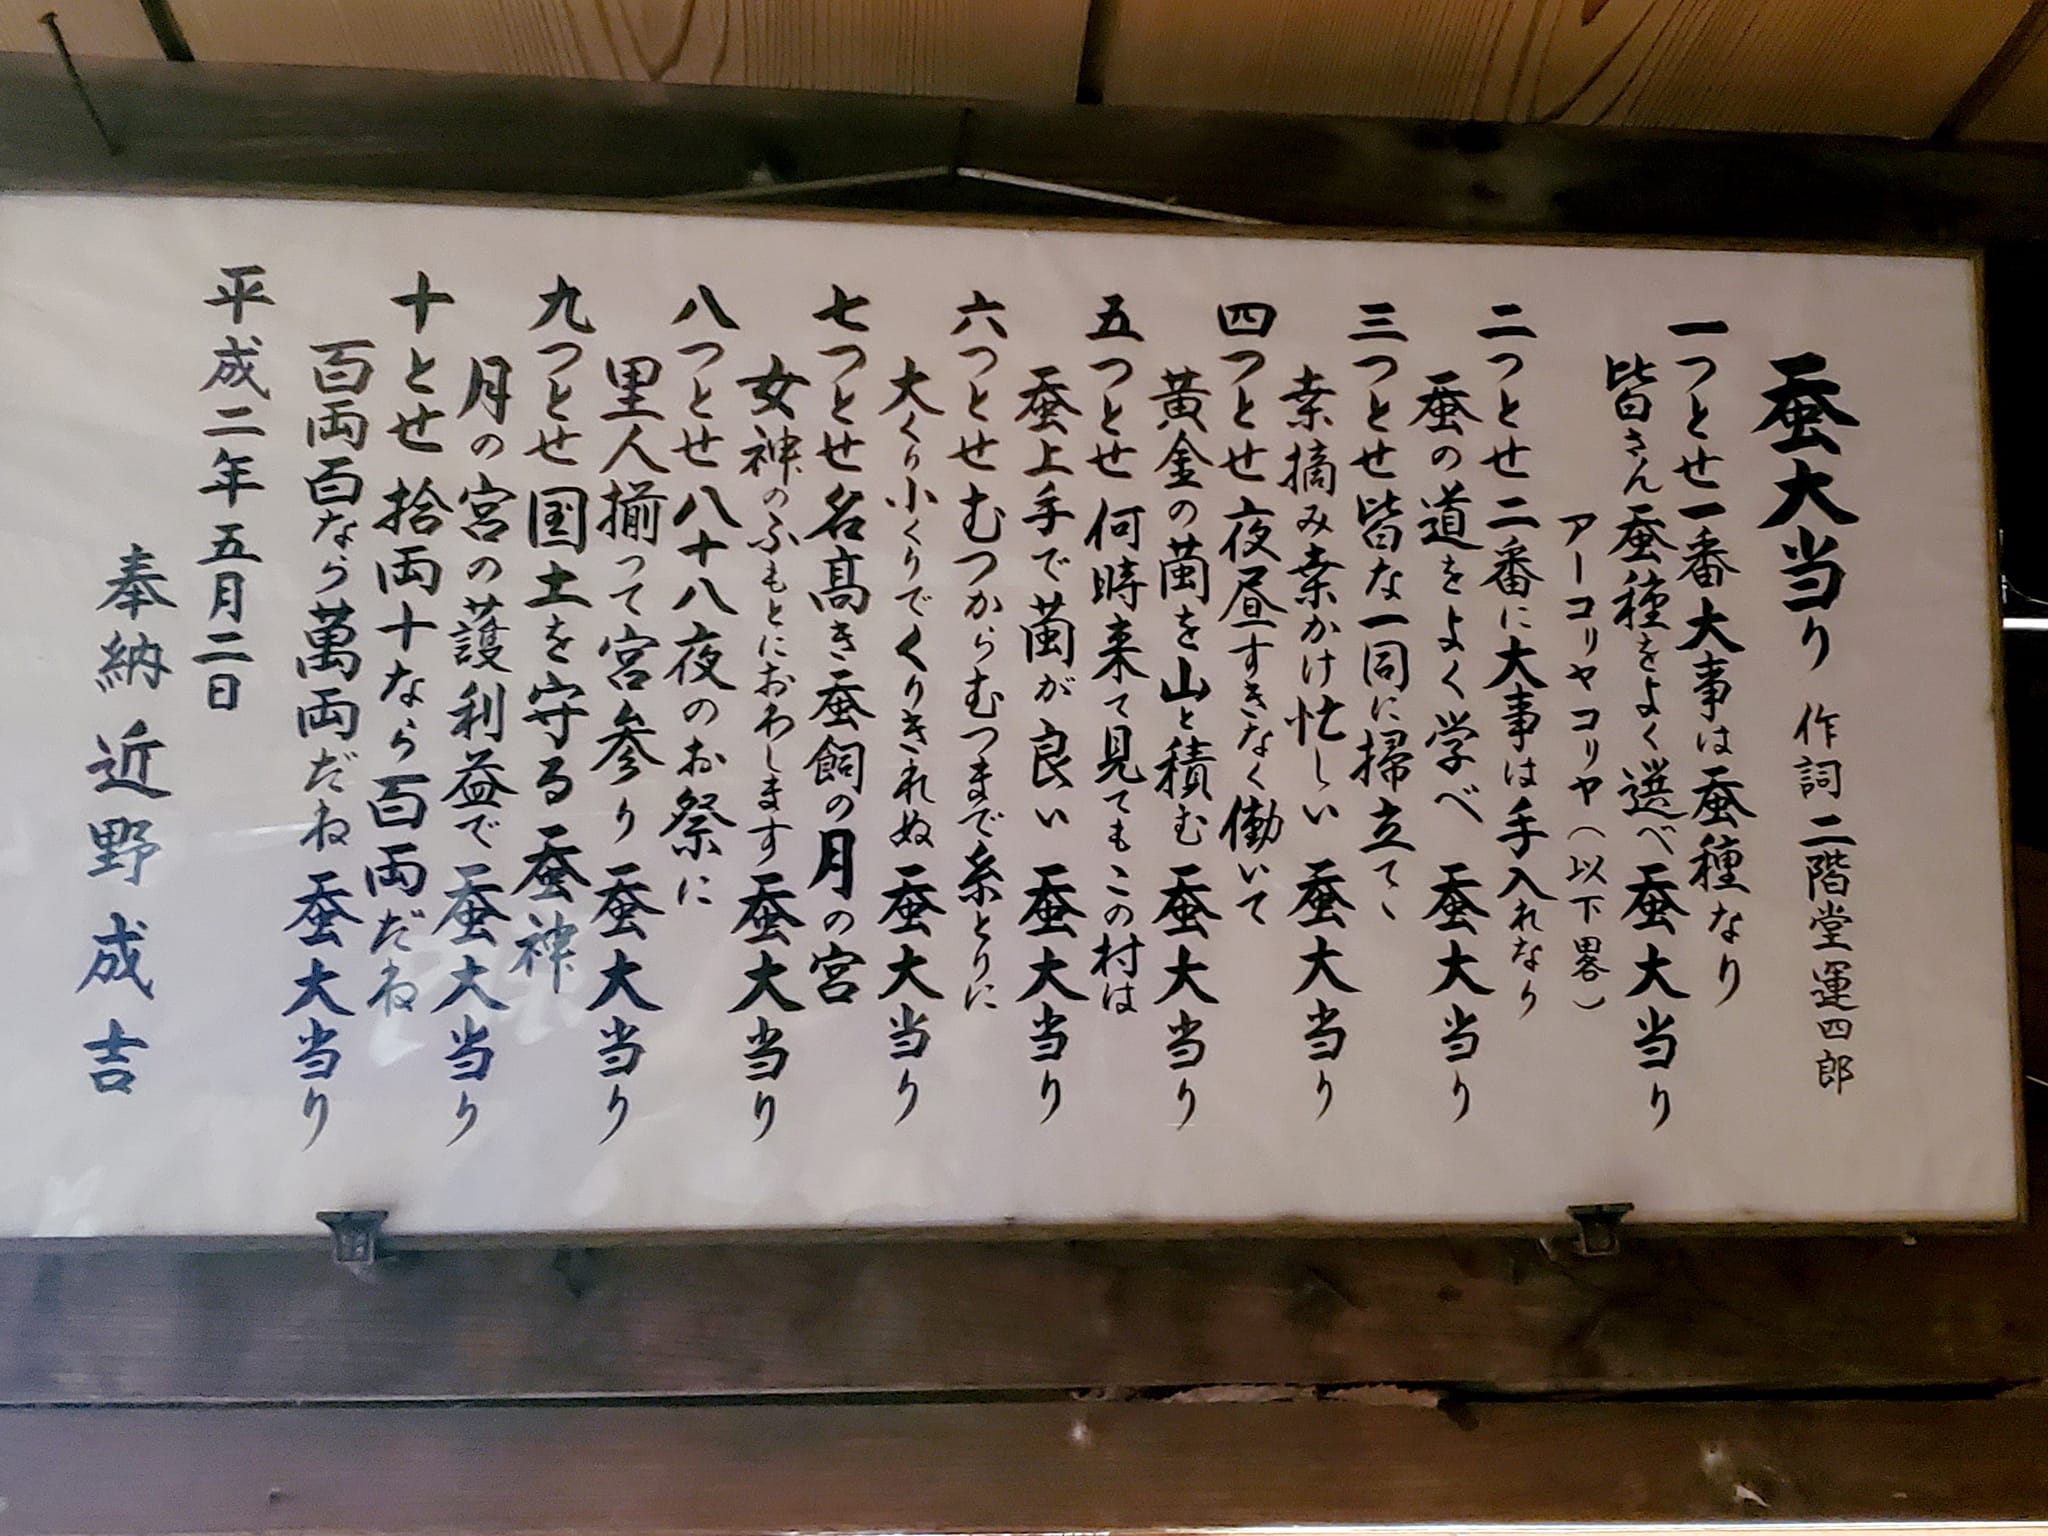 蚕大当り 作詞 二階堂運四郎
一つとせ一番大事は蚕種なり
皆さん蚕種をよく選べ蚕大当り
アーコリヤコリヤ（以下畧）
二つとせ二番に大事は手入れなり
蚕の道をよく学べ 蚕大当り
三つとせ皆な一同に掃立てゝ
桒摘み桒かけ忙しい 蚕大当り
四つとせ夜昼すきなく働いて
黄金の繭を山と積む 蚕大当り
五つとせ 何時来て見てもこの村は
蚕上手で繭が良い 蚕大当り
六つとせむつからむつまで糸とりに
大くり小くりでくりきれぬ 蚕大当り
七つとせ名髙き蚕飼の月の宮
女神のふもとにおわします蚕大当り
八つとせ八十八夜のお祭に
里人揃って宮参り 蚕大当り
九つとせ国土を守る 蚕神
月の宮の護利益で蚕大当り
十とせ 拾両十なら百両だね
百両百なら萬両だね 蚕大当り
平成二年五月二日
奉納 近野成吉